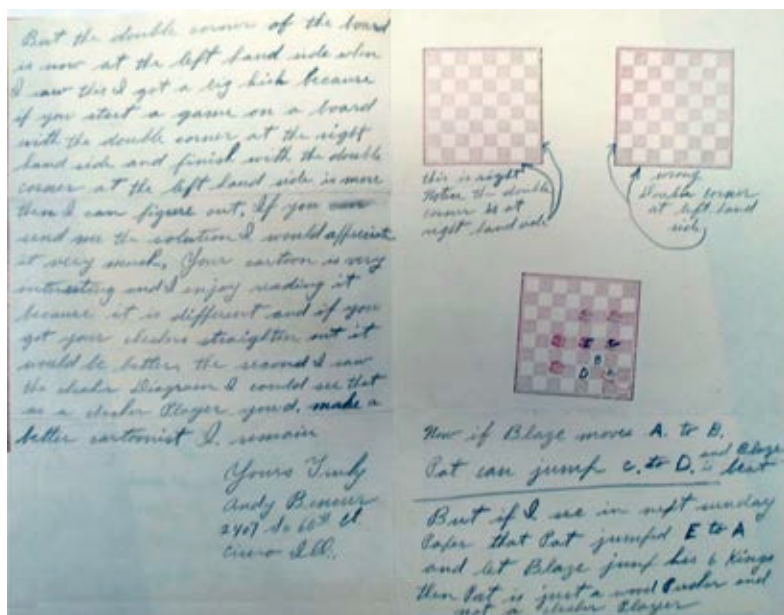 But the double corner of the board
is now at the left hand side when
I saw this I got a big kick because
if you start a game on a board
with the double corner at the right
hand side and finish with the double
corner at the left hand side is more
then I can figure out. If you
send me the solution I would appreciate
it very much. Your cartoon is very
interesting and I enjoy reading it
because it is different and if you
got your checkers straighten out it
would be better, the second I saw
the checker Diagram I could see that
as a checker Player you'd. make a
better cartoonist I. remain
Yours Truly
Andy
2407 So 60th Ct.
Cicero Ill.
this is right
Notice the double
corner is at
right hand side
wrong
Double corner
at left hand
side
B
D
Now if Blaze moves A. to B.
Pat can jump C. to D. and Blaze
is beat
But if I see in next sunday
Paper that Pat jumped E to A
and let Blaze jump his 6 Kings
then Pat is just a wood Pusher and
not a checker Player